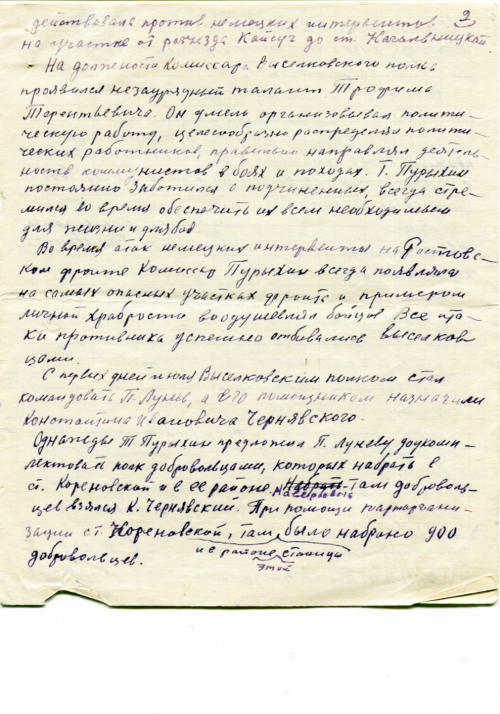 действовала против немецких интервентов 9
на участке от разъезда Кайсуг до ст. Кагальницкой.
На должности Комиссара Выселковского полка
проявился незаурядный талант Трофима
Терентьевича. Он умело организовывал полити-
ческую работу, целесообразно распределял полити-
ческих работников, правильно направлял деятель-
ность коммунистов в боях и походах. Т. Пурыхин
постоянно заботился о подчиненных, всегда стре-
мился во время обеспечить их всем необходимым
для жизни и для боя
Во время атак немецких интервентов на Ростовс-
ком фронте Комиссар Пурыхин всегда появлялся
на самых опасных участках фронта и примером
личной храбрости воодушевлял бойцов. Все ата-
ки противника успешно отбивались выселков-
цами.
С первых дней июля Выселковским полком стал
командовать П. Лунев, а его помощником назначили
Константина Ивановича Чернявского.
Однажды Т Пурыхин предложил П. Луневу доуком-
плектовать полк добровольцами, которых набрать в
ст. Кореновской и в ее районе. Набрать там доброволь-
цев взялся К. Чернявский. При помощи парторгани-
зации ст. Кореновской, там было набрано 900
и в районе станицы
этой
добровольцев.